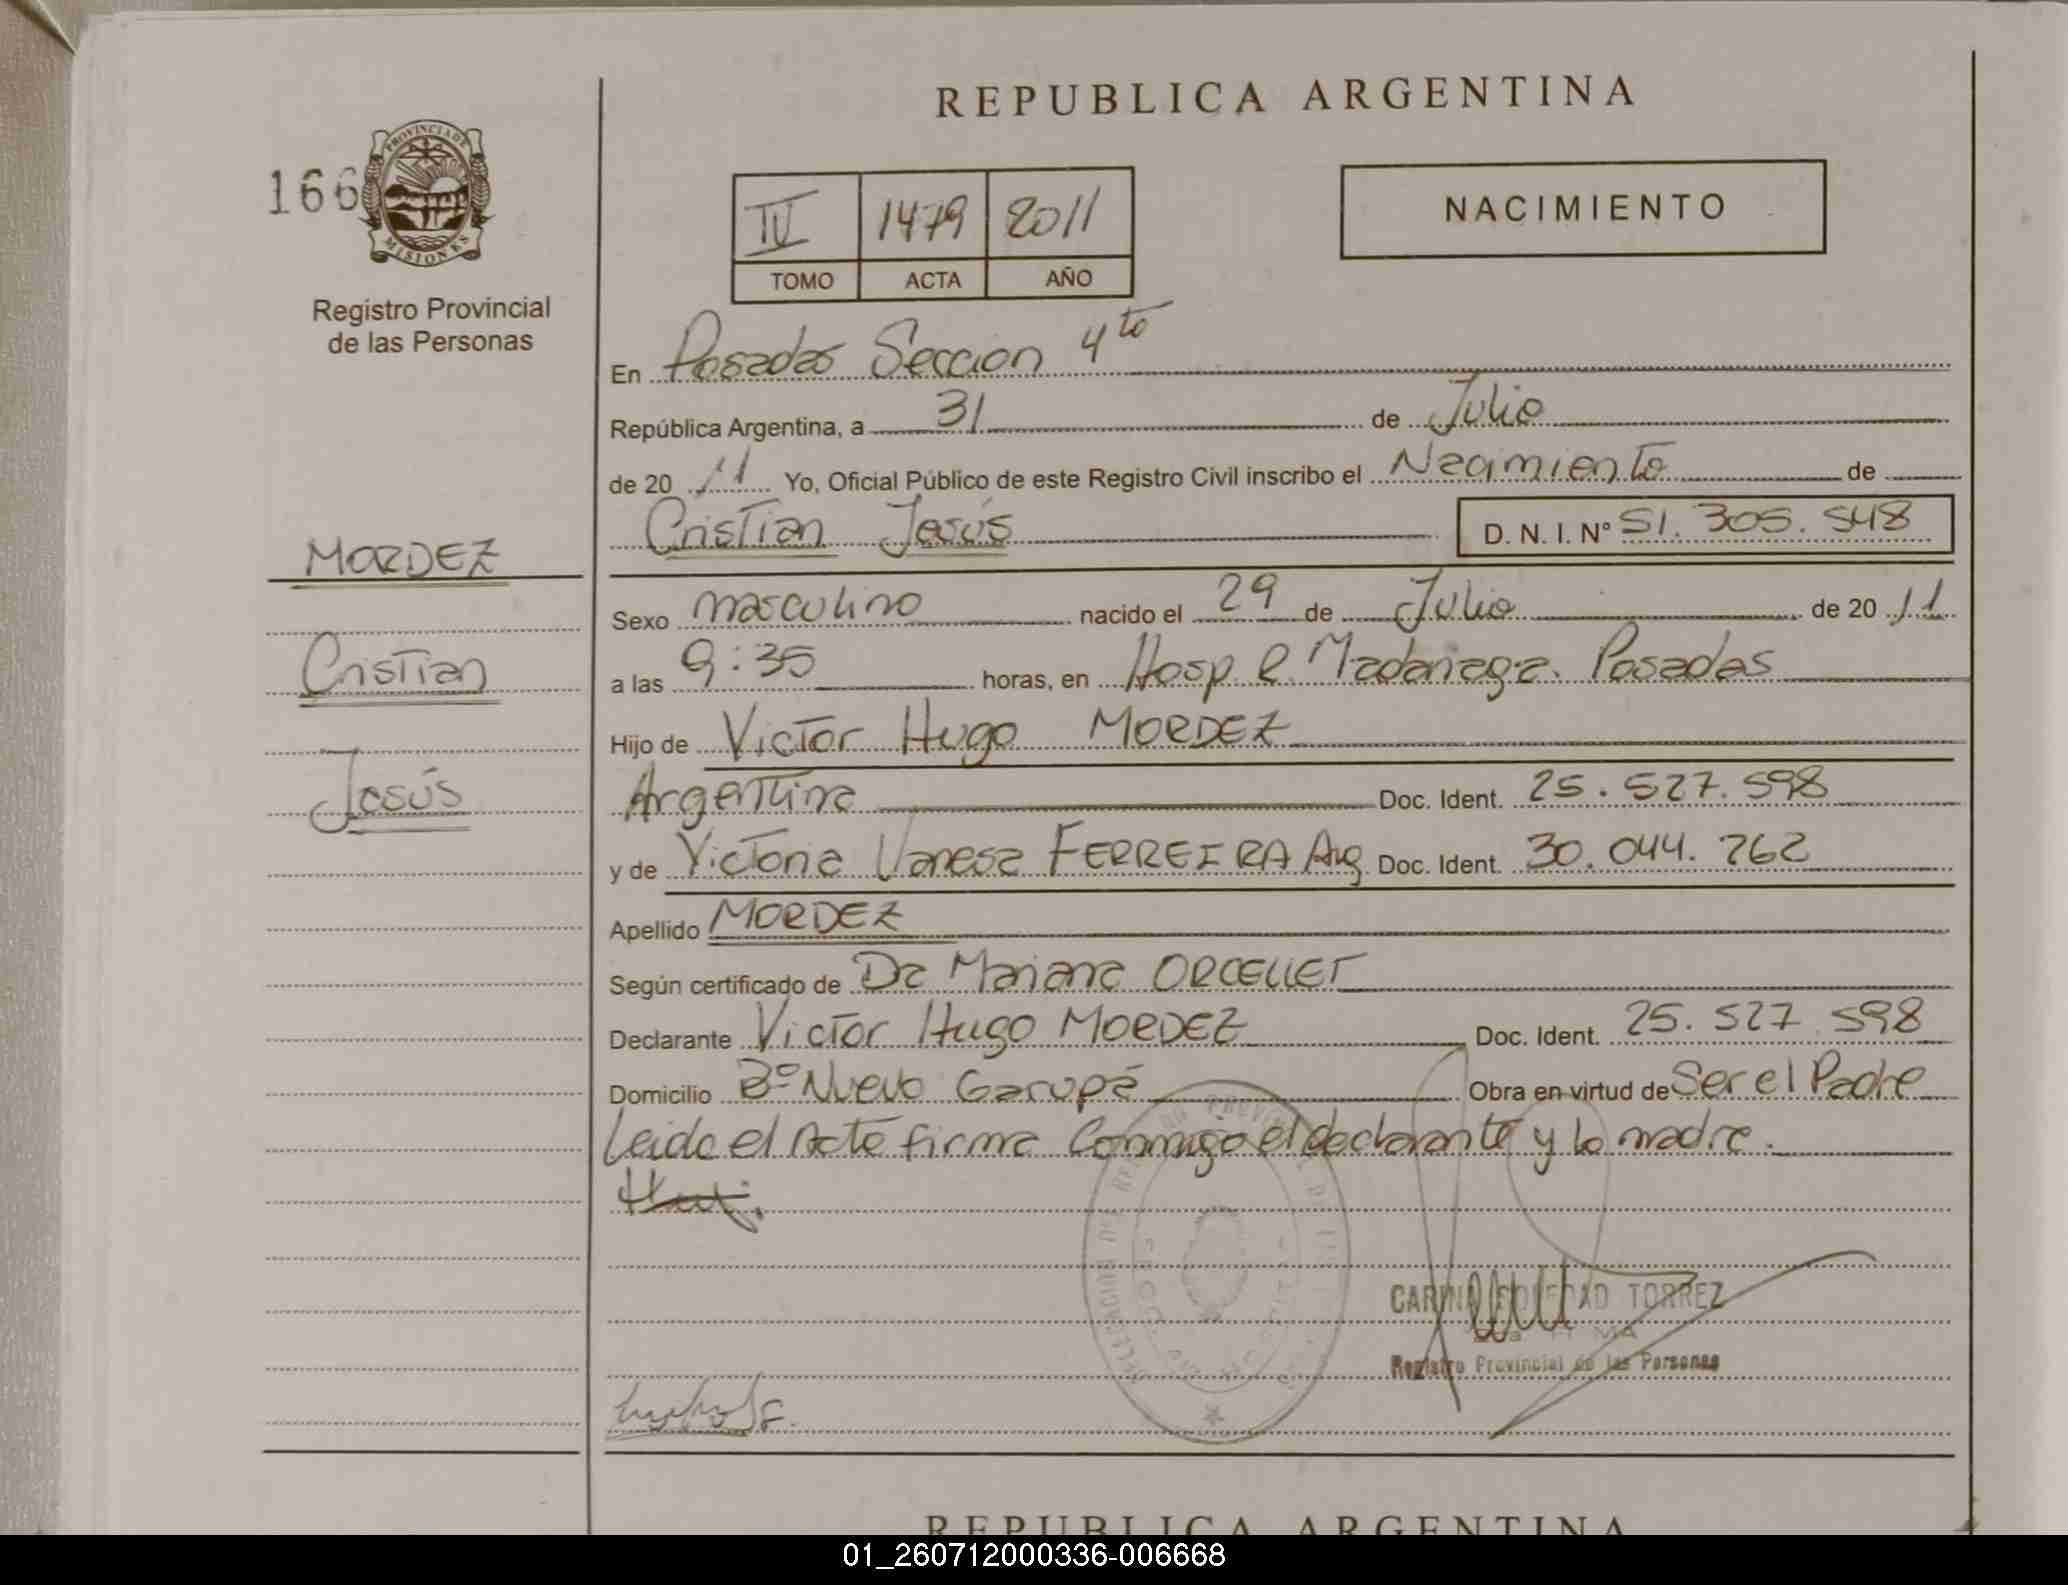 REPUBLICA ARGENTINA
166
PROVINCIA DE
MISIONES
Registro Provincial
de las Personas
IV 1479 2011
TOMO ACTA AÑO
NACIMIENTO
En Posadas Seccion 4to
República Argentina, a 31 de Julio
de 20 11 Yo, Oficial Público de este Registro Civil inscribo el Nacimiento de
Cristian Jesús D. N. I. Nº 51.305.548
MORDEZ
Cristian
Jesús
Sexo masculino nacido el 29 de Julio de 20 11
a las 9:35 horas, en Hosp. R. Madariaga. Posadas
Hijo de Victor Hugo MORDEZ
Argentina Doc. Ident. 25.527.598
y de Victoria Vanesa FERREIRA Arg Doc. Ident. 30.044.262
Apellido MORDEZ
Según certificado de Da Mariana ORCELLET
Declarante Victor Hugo MORDEZ Doc. Ident. 25.527.598
Domicilio Bº Nuevo Garupá Obra en virtud de Ser el Padre
Leida el Acta firma Conmigo el declarante y la madre.
CARINA SOLEDAD TORREZ
Registro Provincial de las Personas
REPUBLICA ARGENTINA
01_260712000336-006668